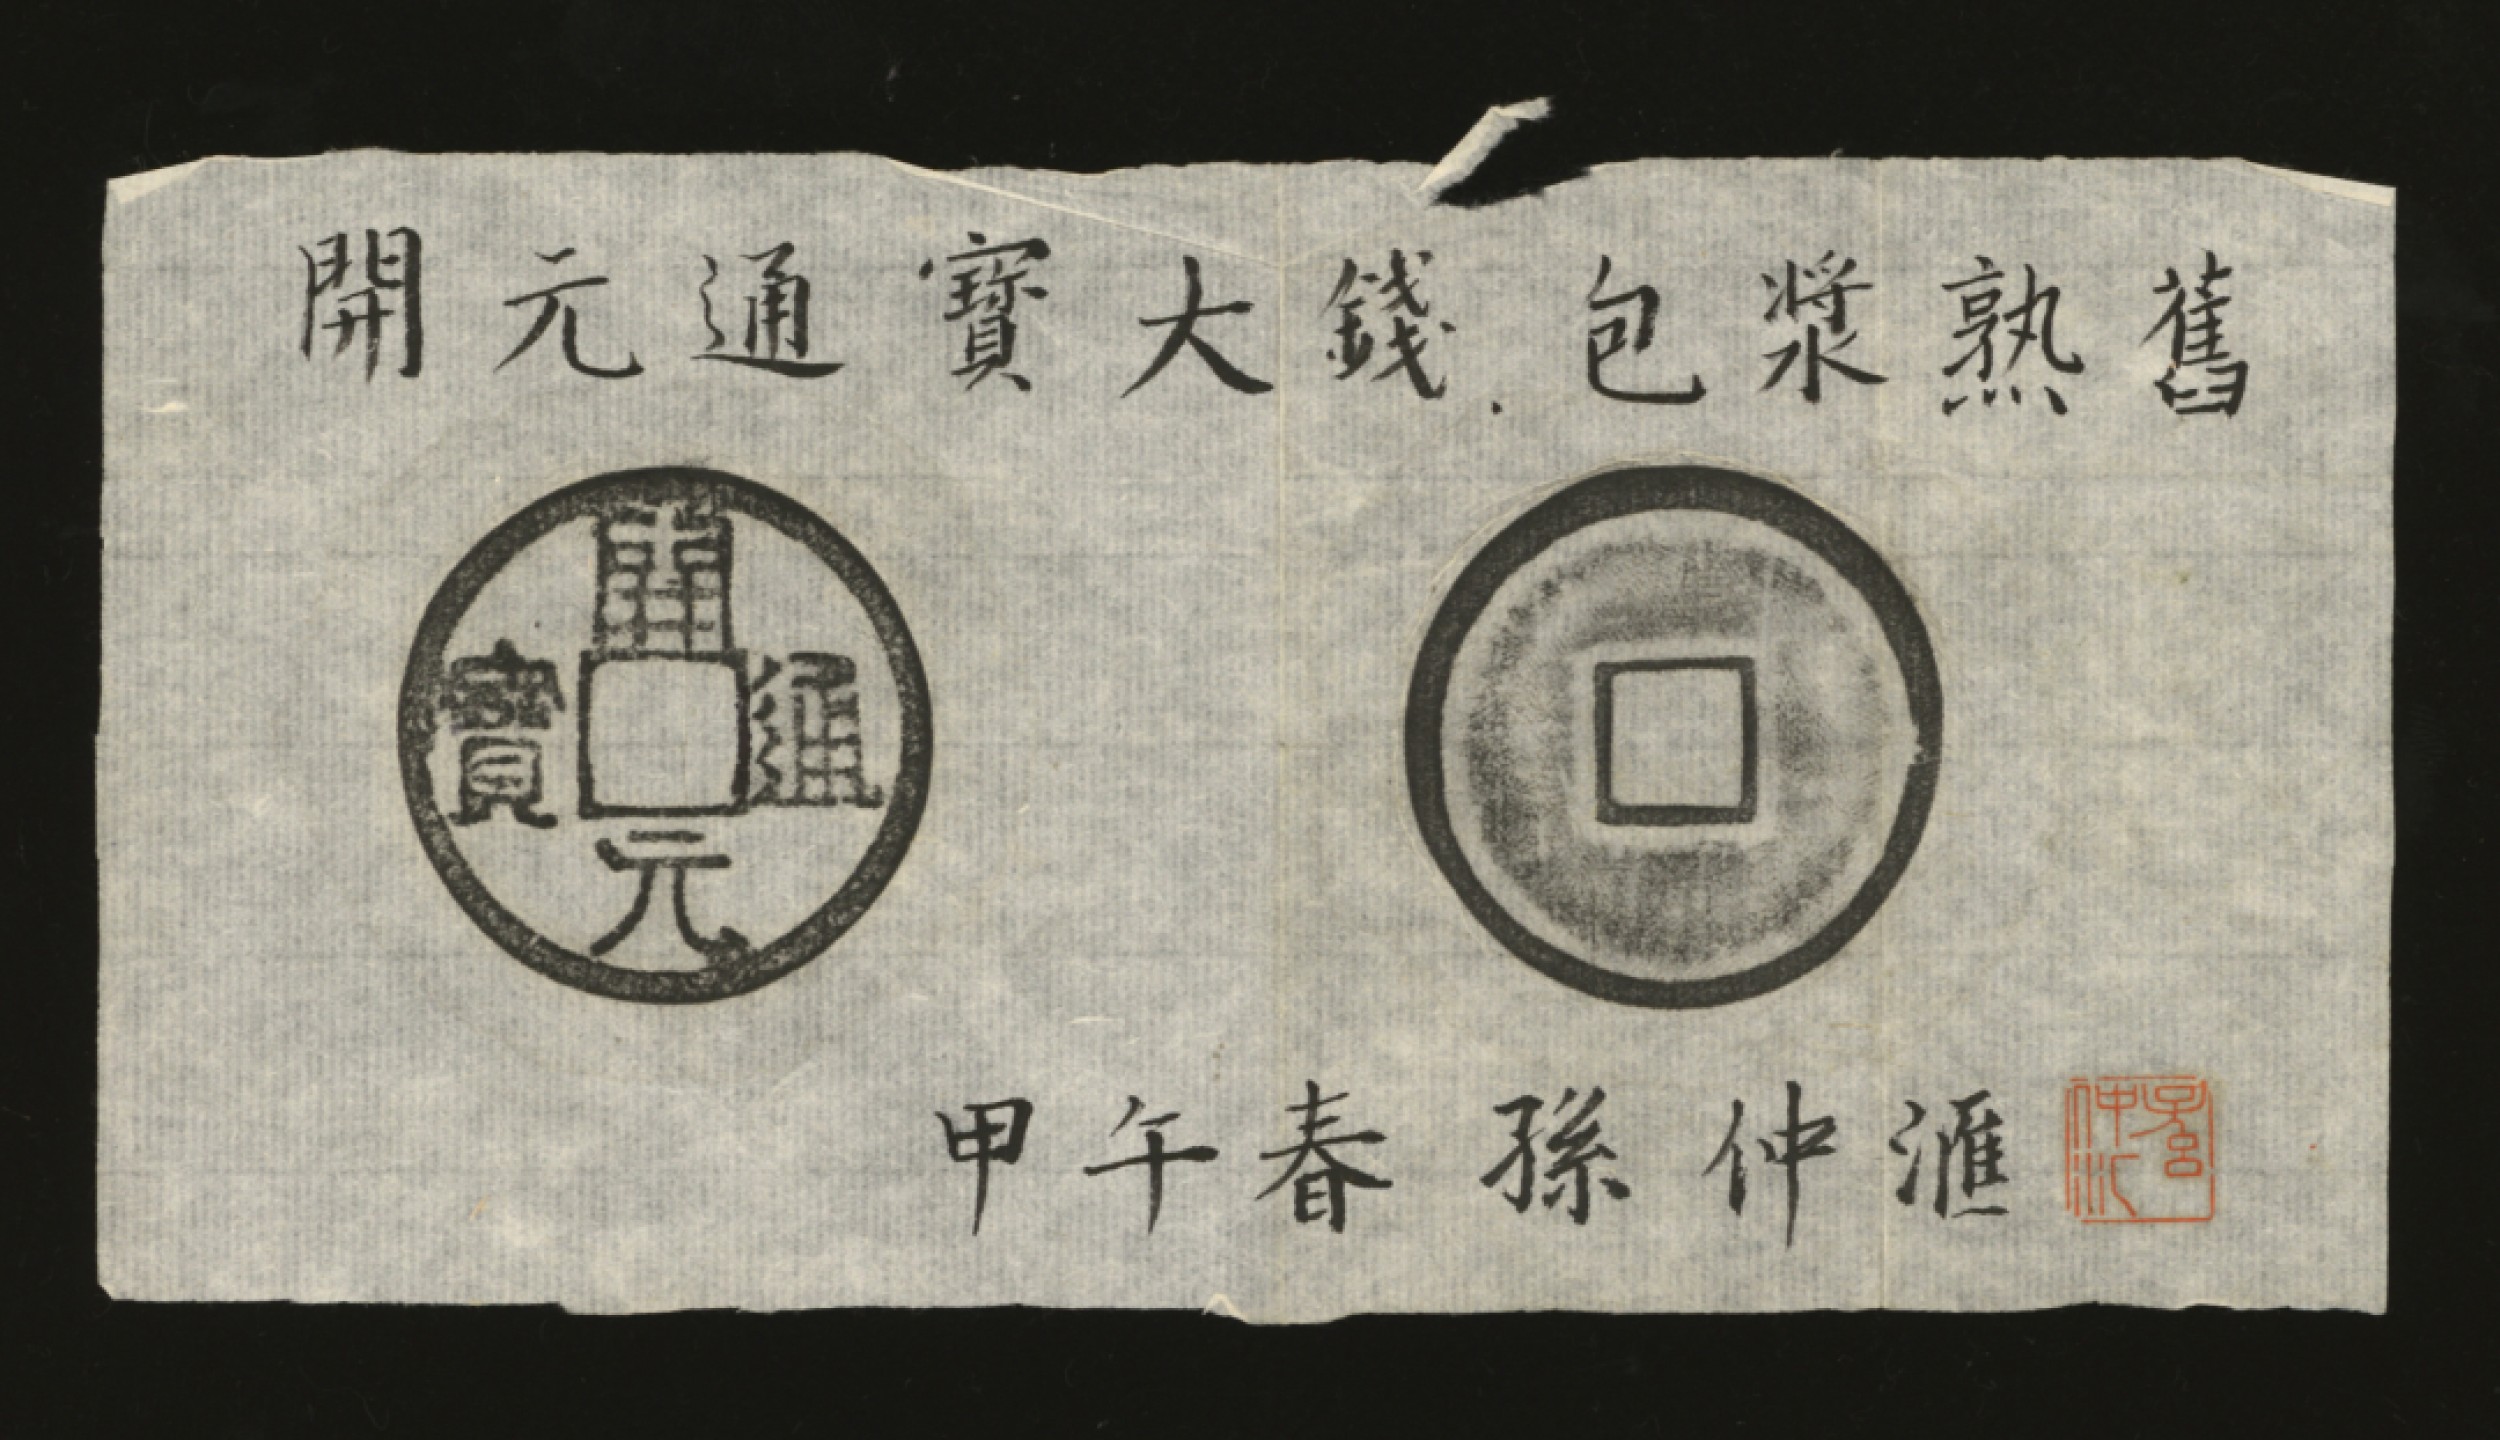 開元通寶大錢.包漿熟舊
開元通寶
甲午春 孫仲滙
孫仲汇